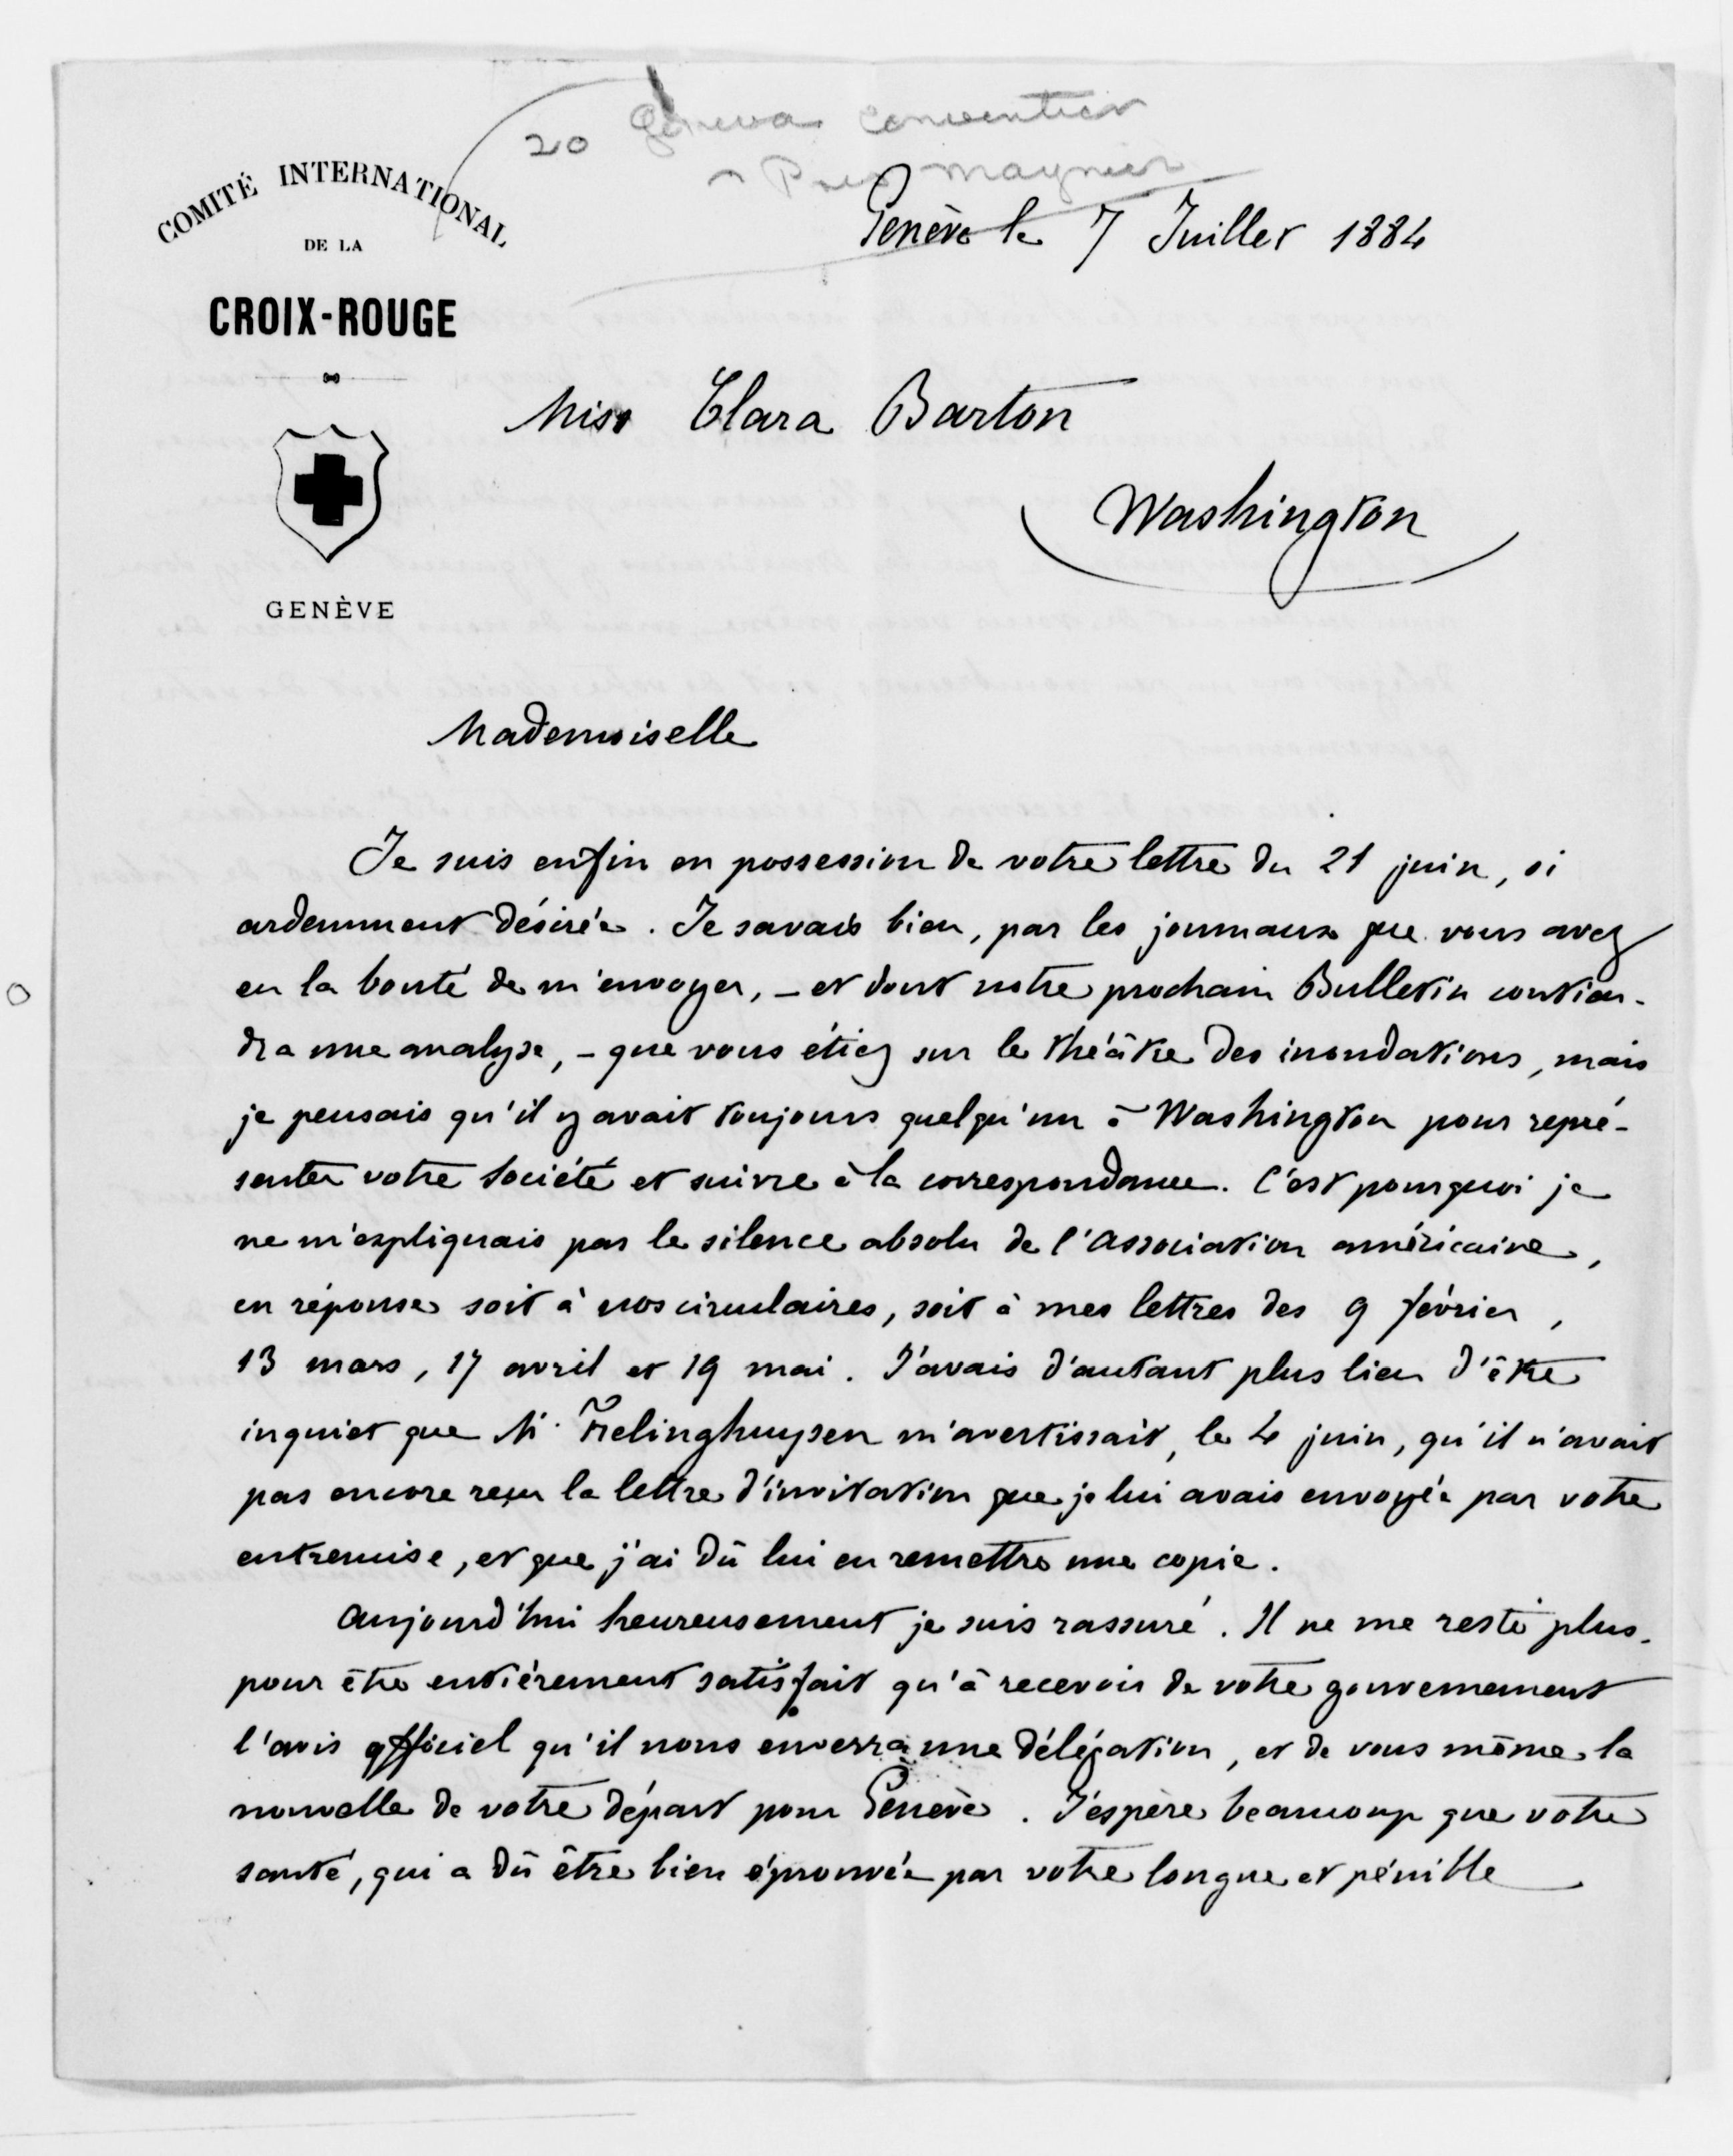 20 Geneva Convention
Pres Moynier
COMITÉ INTERNATIONAL
DE LA
CROIX-ROUGE
GENÈVE
Genève le 7 Juillet 1884
Miss Clara Barton
Washington
Mademoiselle
Je suis enfin en possession de votre lettre du 21 juin, si
ardemment désirée. Je savais bien, par les journaux que vous avez
eu la bonté de m'envoyer, – et dont notre prochain Bulletin contien-
dra une analyse, – que vous étiez sur le théâtre des inondations, mais
je pensais qu'il y avait toujours quelqu'un à Washington pour repré-
senter votre Société et suivre à la correspondance. C'est pourquoi je
ne m'expliquais pas le silence absolu de l'Association américaine,
en réponse soit à nos circulaires, soit à mes lettres des 9 février,
13 mars, 17 avril et 19 mai. J'avais d'autant plus lieu d'être
inquiet que Mr. Frelinghuysen m'avertissait, le 4 juin, qu'il n'avait
pas encore reçu la lettre d'invitation que je lui avais envoyée par votre
entremise, et que j'ai dû lui en remettre une copie.
Aujourd'hui heureusement je suis rassuré. Il ne me reste plus
pour être entièrement satisfait qu'à recevoir de votre gouvernement
l'avis officiel qu'il nous enverra une délégation, et de vous même la
nouvelle de votre départ pour Genève. J'espère beaucoup que votre
santé, qui a dû être bien éprouvée par votre longue et pénible